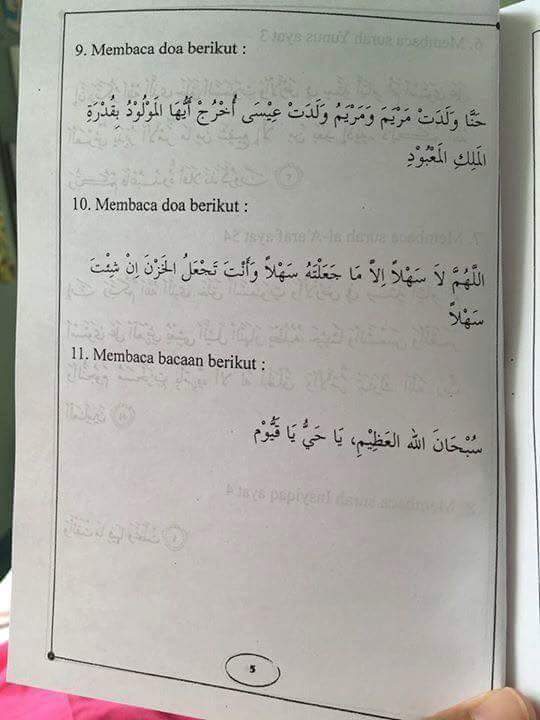 9. Membaca doa berikut :
حَنَّا وَلَدَتْ مَرْيَمَ وَمَرْيَمُ وَلَدَتْ عِيْسَى أُخْرُجْ أَيُّهَا المَوْلُوْدُ بِقُدْرَةِ
المَلِكِ المَعْبُوْدِ
10. Membaca doa berikut :
اللَّهُمَّ لاَ سَهْلاً إِلاَّ مَا جَعَلْتَهُ سَهْلاً وَأَنْتَ تَجْعَلُ الحَزْنَ إِنْ شِئْتَ
سَهْلاً
11. Membaca bacaan berikut :
سُبْحَانَ الله العَظِيْمِ، يَا حَيُّ يَا قَيُّوْم
5